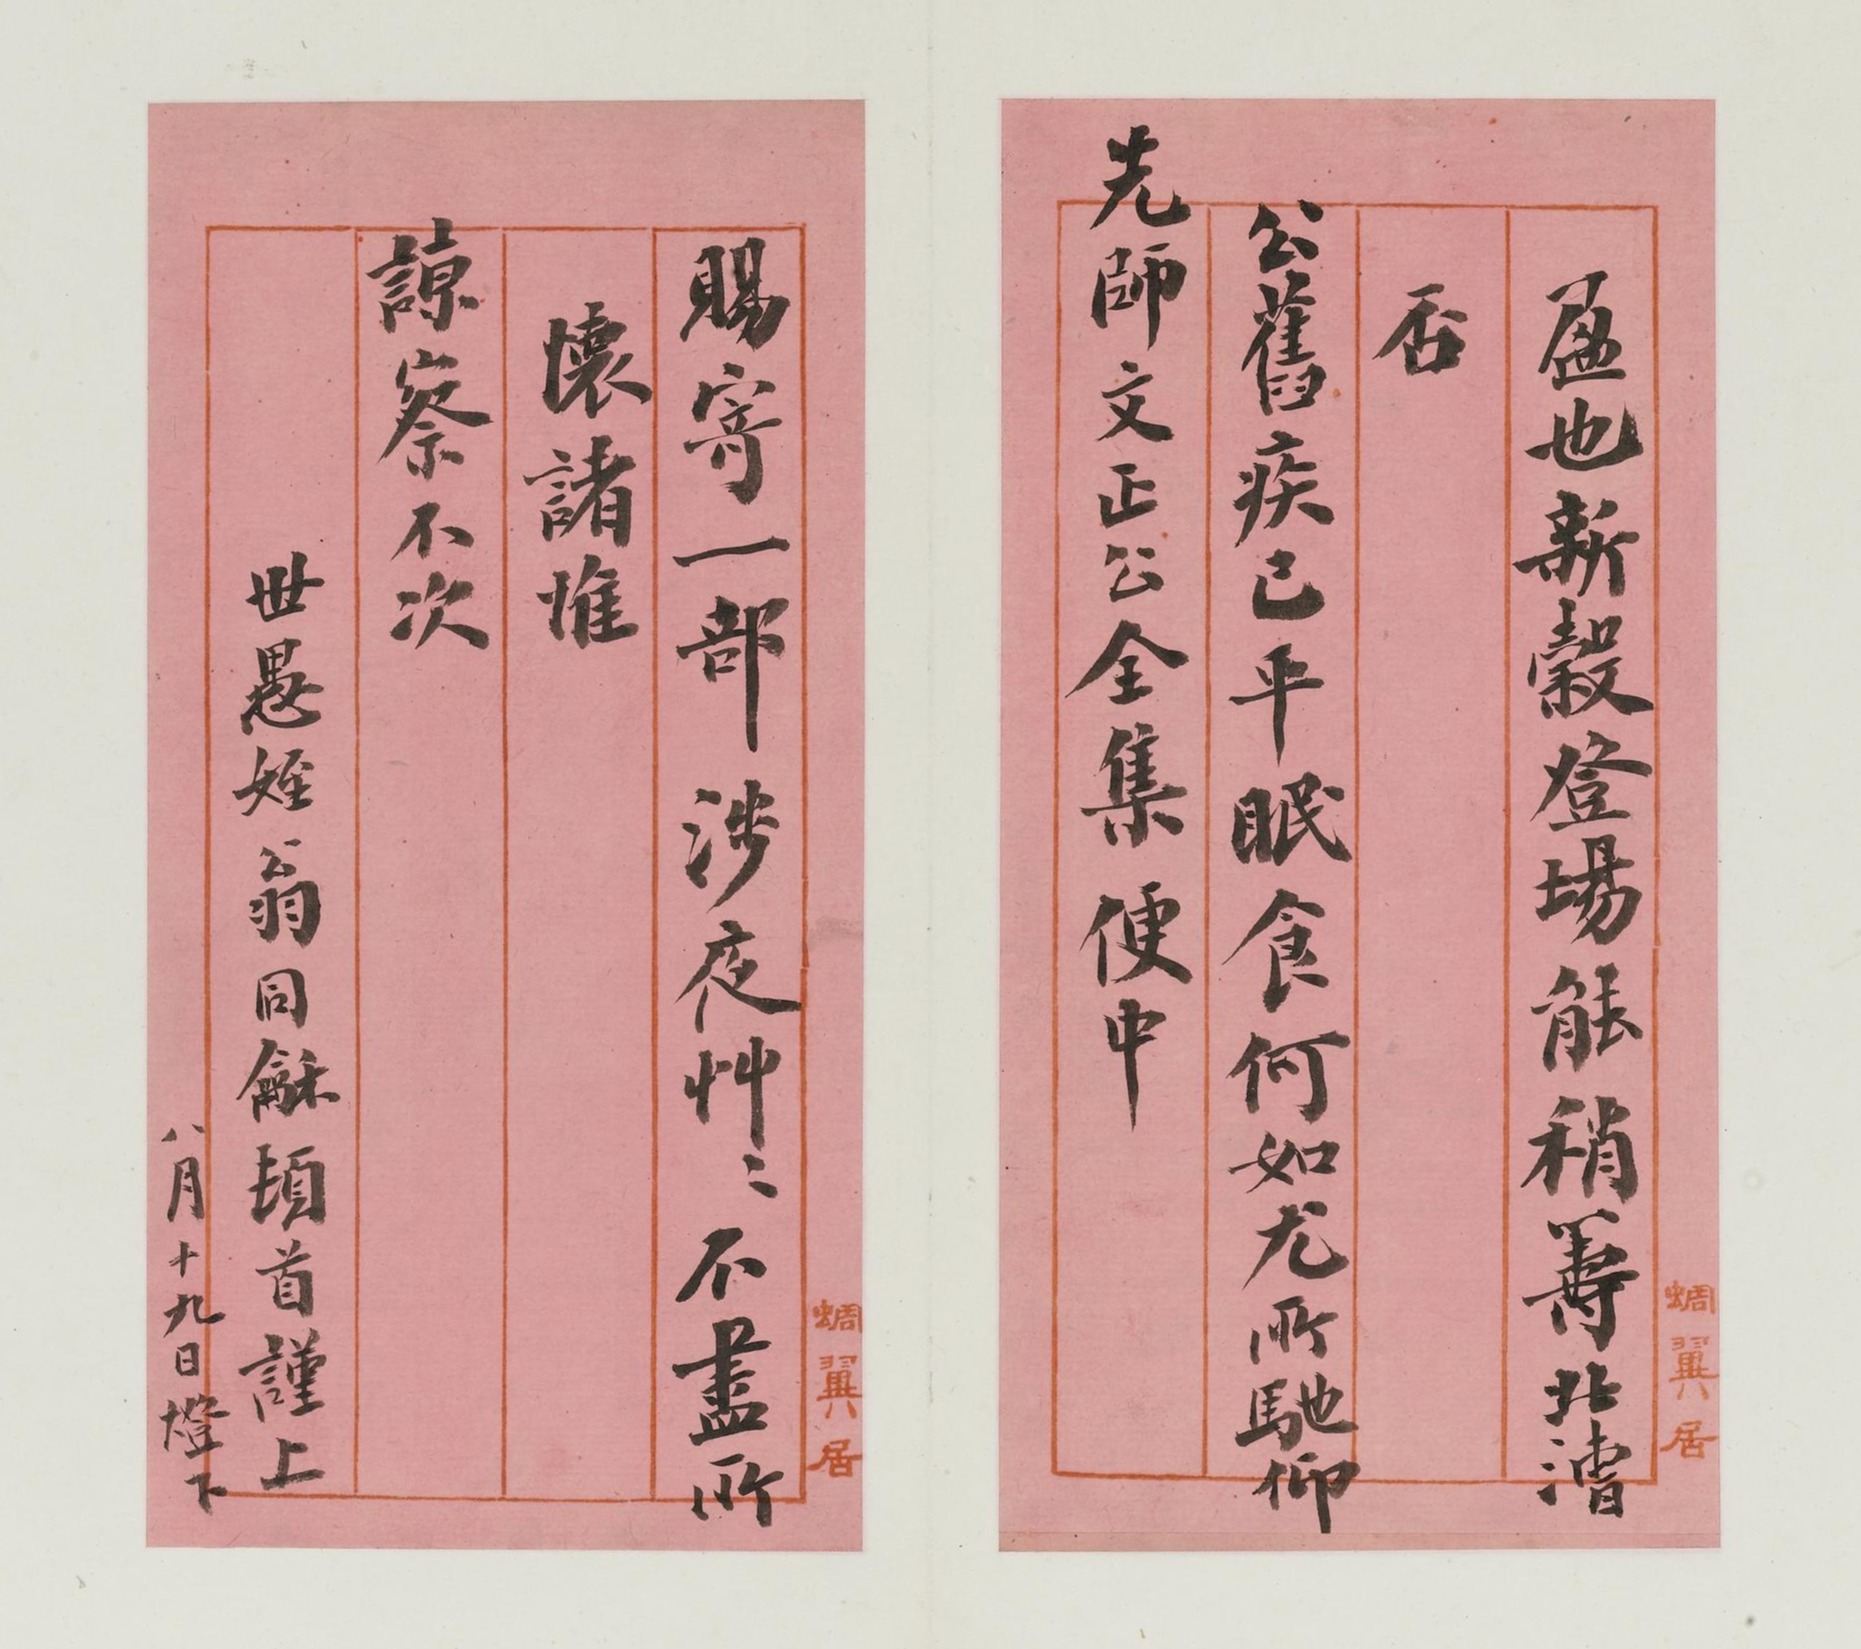 盈也新穀登場能稍籌北漕
否
公舊疾已平眠食何如尤所馳仰
先師文正公全集便中
蜩翼居
賜寄一部涉夜艸〻不盡所
懷諸惟
諒察不次
世愚姪翁同龢頓首謹上
八月十九日燈下
蜩翼居